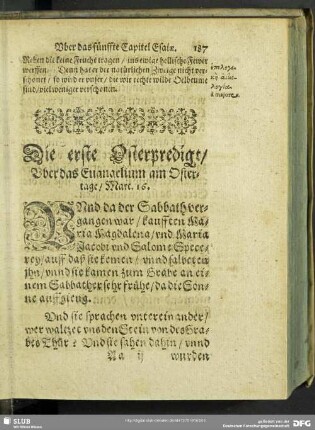 Vber das fünffte Capitel Esaiæ. 187
Reben die keine Früchte tragen / ins ewige hellische Fewer
werffen. Denn hat er der natürlichen Zweige nicht ver-
schonet / so wird er vnser / die wir rechte wilde Oelbeume
sind / viel weniger verschonen.
Die erste Osterpredigt /
Vber das Euangelium am Oster-
tage / Marc. 16.
VNd da der Sabbath ver-
gangen war / kaufften Ma-
ria Magdalena / vnd Maria
Jacobi vnd Salome Spece-
rey / auff daß sie kemen / vnnd salbeten
jhn / vnnd sie kamen zum Grabe an ei-
nem Sabbather sehr frühe / da die Son-
ne auffgieng.
Vnd sie sprachen vnterein ander /
wer waltzet vns den Stein von des Gra-
bes Thür? Vnd sie sahen dahin / vnnd
Aa ij wurden
SLUB
DFG